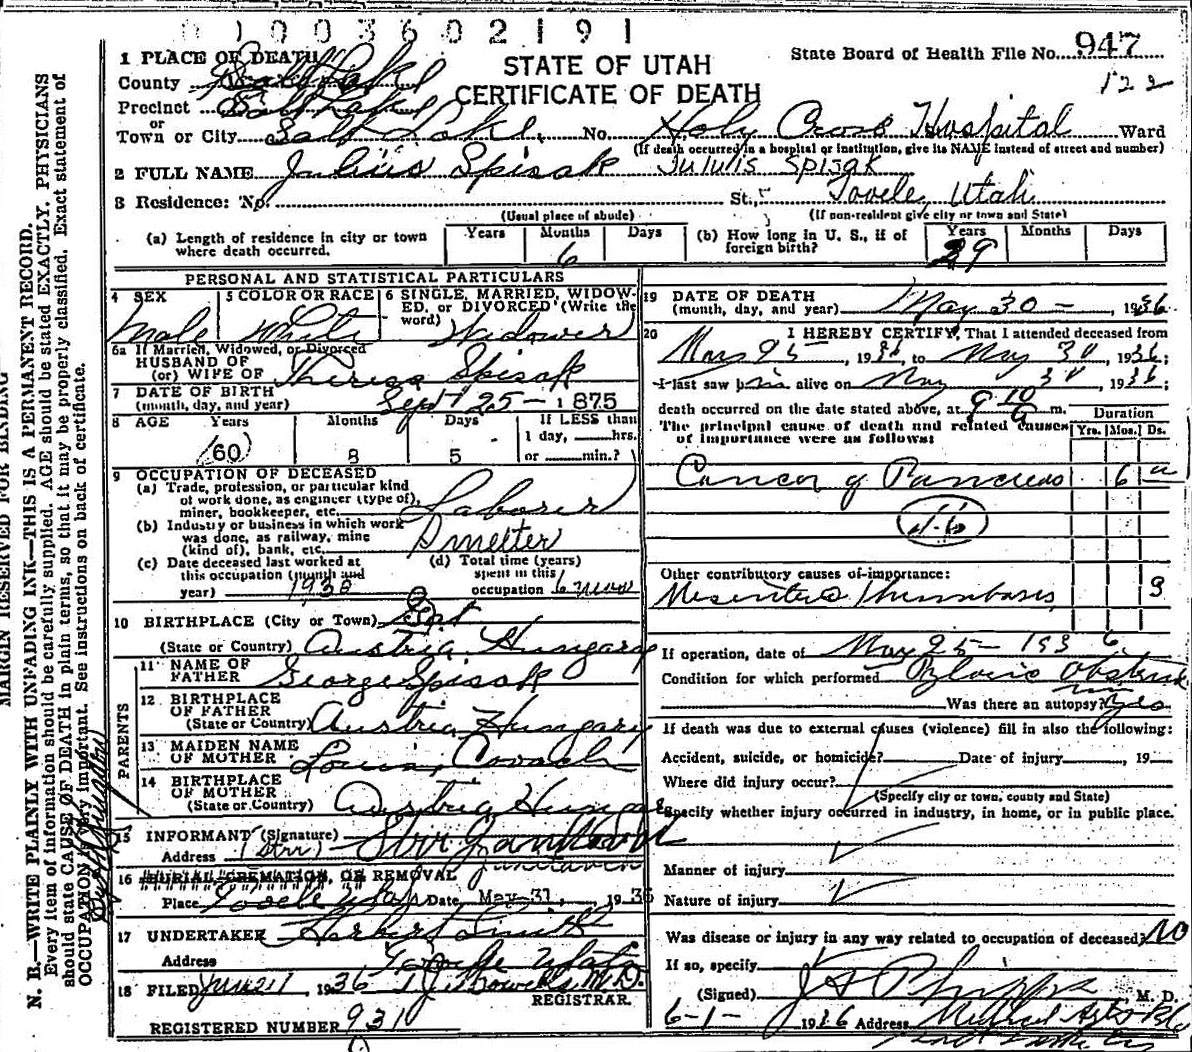 0 1 0 0 3 6 0 2 1 9 1
State Board of Health File No. 947
122
STATE OF UTAH
CERTIFICATE OF DEATH
1 PLACE OF DEATH
County Salt Lake
Precinct Salt Lake
or
Town or City Salt Lake, No. Holy Cross Hospital Ward
(If death occurred in a hospital or institution, give its NAME instead of street and number)
2 FULL NAME Julius Spisak Jululs Spisak
3 Residence: No. St., Tooele, Utah
(Usual place of abode) (If non-resident give city or town and State)
(a) Length of residence in city or town where death occurred. Years Months 6 Days (b) How long in U. S., if of foreign birth? Years 29 Months Days
PERSONAL AND STATISTICAL PARTICULARS
4 SEX Male 5 COLOR OR RACE White 6 SINGLE, MARRIED, WIDOWED, or DIVORCED (Write the word) Widower
6a If Married, Widowed, or Divorced
HUSBAND OF
(or) WIFE OF Theresa Spisak
7 DATE OF BIRTH
(month, day, and year) Sept 25 - 1875
8 AGE Years 60 Months 8 Days 5 If LESS than 1 day, hrs. or min.?
9 OCCUPATION OF DECEASED
(a) Trade, profession, or particular kind of work done, as engineer (type of), miner, bookkeeper, etc. Laborer
(b) Industry or business in which work was done, as railway, mine (kind of), bank, etc. Smelter
(c) Date deceased last worked at this occupation (month and year) 1930
(d) Total time (years) spent in this occupation
10 BIRTHPLACE (City or Town)
(State or Country) Austria Hungary
PARENTS
11 NAME OF FATHER George Spisak
12 BIRTHPLACE OF FATHER (State or Country) Austria Hungary
13 MAIDEN NAME OF MOTHER
14 BIRTHPLACE OF MOTHER (State or Country) Austria Hungary
15 INFORMANT (Signature)
Address
16 BURIAL, CREMATION, OR REMOVAL
Place Tooele Utah Date, May 31, 1936
17 UNDERTAKER Herbert Smith
Address Tooele Utah
18 FILED 1936 M.D.
REGISTRAR.
REGISTERED NUMBER 931
19 DATE OF DEATH
(month, day, and year) May 30 - 1936
20 I HEREBY CERTIFY, That I attended deceased from
May 25, 1936, to May 30, 1936;
I last saw him alive on May 30, 1936;
death occurred on the date stated above, at m.
The principal cause of death and related causes of importance were as follows: Duration Yrs. Mos. Ds.
Cancer of Pancreas 6
Other contributory causes of importance:
Mesenteric Thrombosis
If operation, date of May 25 - 1936
Condition for which performed Pyloric Obstruction
Was there an autopsy? yes
If death was due to external causes (violence) fill in also the following:
Accident, suicide, or homicide? Date of injury, 19
Where did injury occur?
(Specify city or town, county and State)
Specify whether injury occurred in industry, in home, or in public place.
Manner of injury
Nature of injury
Was disease or injury in any way related to occupation of deceased? No
If so, specify
(Signed) M. D.
6-1- 1936 Address
MARGIN RESERVED FOR BINDING
N. B.—WRITE PLAINLY WITH UNFADING INK—THIS IS A PERMANENT RECORD.
Every item of information should be carefully supplied. AGE should be stated EXACTLY. PHYSICIANS
should state CAUSE OF DEATH in plain terms, so that it may be properly classified. Exact statement of
OCCUPATION is very important. See instructions on back of certificate.